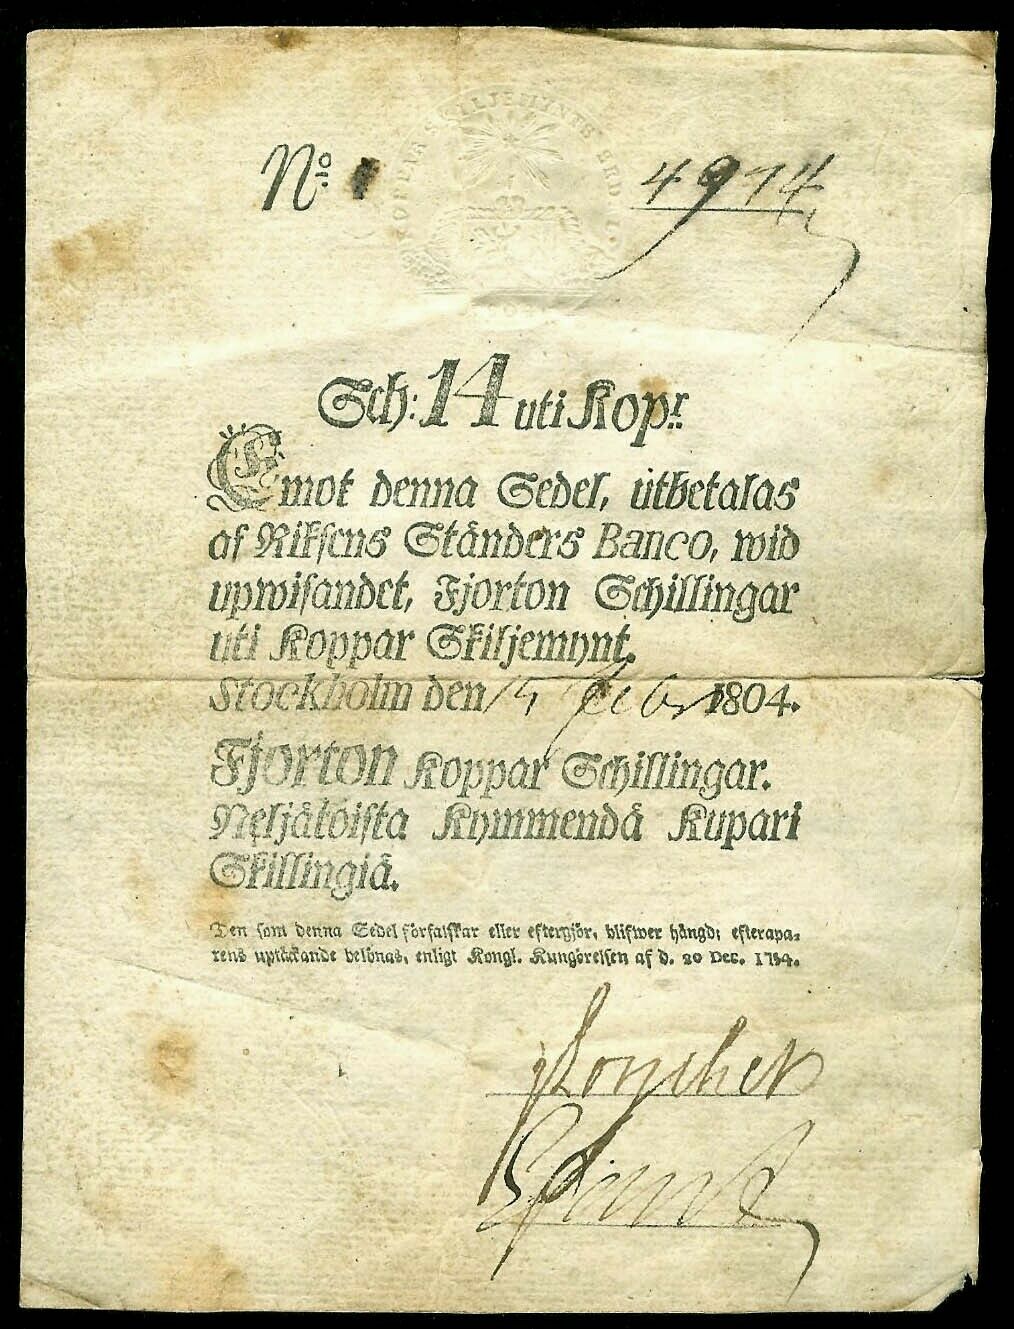 KOPPAR SKILJEMYNTS
No. 4974
Sch: 14 uti Kop:r
Emot denna Sedel, utbetalas
af Riksens Ständers Banco, wid
upwisandet, Fjorton Schillingar
uti Koppar Skiljemynt.
Stockholm den 15 Febr 1804.
Fjorton Koppar Schillingar.
Neljätöista Kymmendä Kupari
Skillingiä.
Den som denna Sedel förfalskar eller eftergjör, blifwer hängd; efterapa-
rens uptäckande belönas, enligt Kongl. Kungörelsen af d. 20 Dec. 1754.